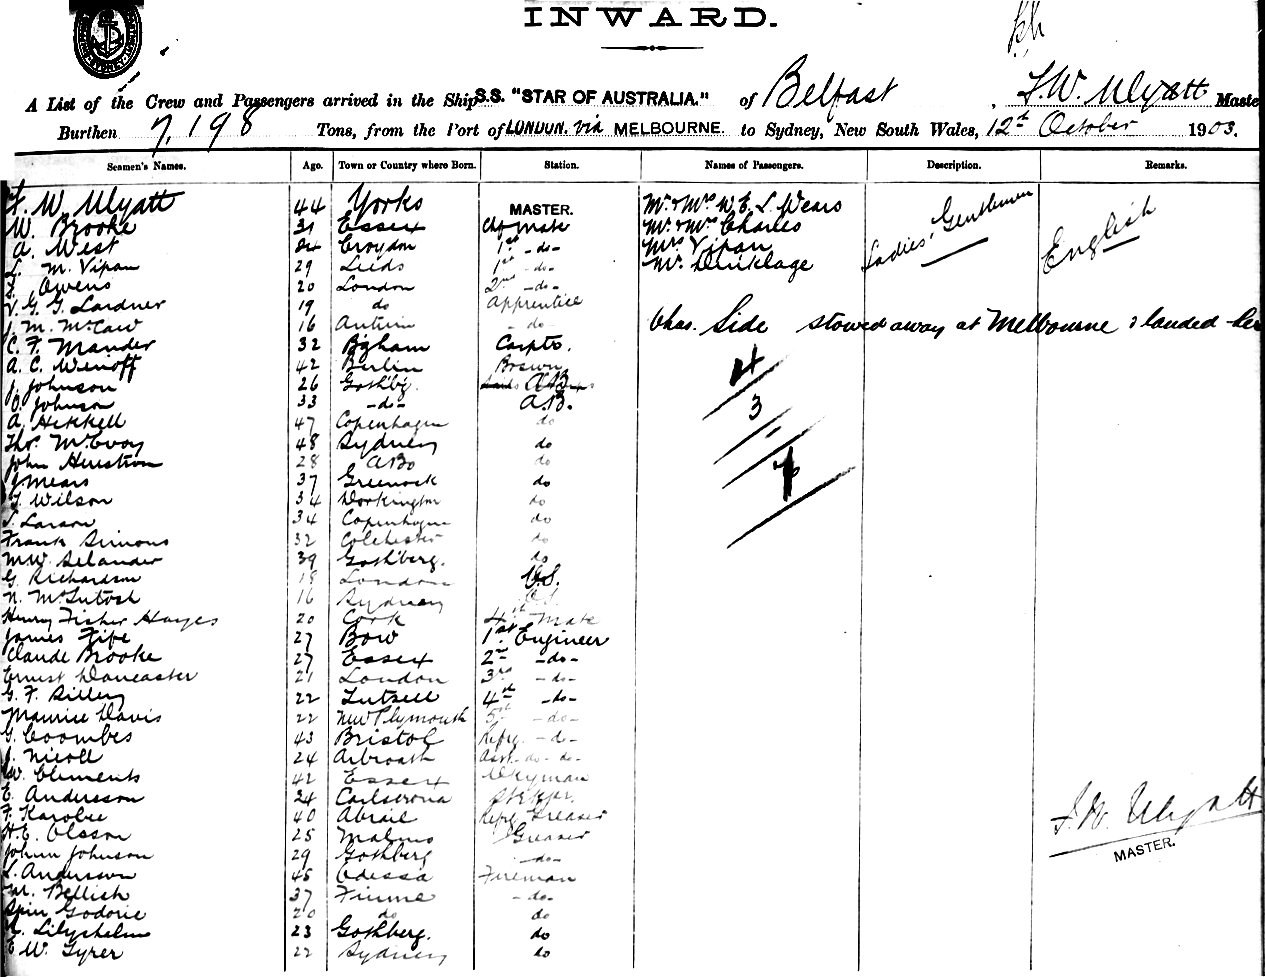 INWARD.
A List of the Crew and Passengers arrived in the Ship S.S. "STAR OF AUSTRALIA." of Belfast, F.W. Wyatt Master
Burthen 7,198 Tons, from the Port of LONDON. via MELBOURNE. to Sydney, New South Wales, 12th October 1903.
Seamen's Names. Age. Town or Country where Born. Station. Names of Passengers. Description. Remarks.
F. W. Wyatt 44 Yorks MASTER. Mr. & Mrs. W. E. L. Wears Ladies' Gentlemen English
W. Brooke 31 Essex Chf Mate Mr. & Mrs. Charles
A. West 24 Croydon 1st -do- Mrs Vipan
L. M. Vipan 29 Leeds 1st -do- Mr. Dinklage
Owens 20 London 2nd -do-
V. G. G. Lardner 19 do Apprentice
J. M. McCaw 16 Antrim -do- Chas. Side stowed away at Melbourne & landed
C. F. Mander 32 Byham Carptr. 4
A. C. Wenoff 42 Berlin Bosun
J. Johnson 26 Gothbg. A.B.
O. Johnson 33 -do- A.B. 3
A. Hikkell 47 Copenhagen do
Thos. McEvoy 48 Sydney do
John Hurstrom 28 ABo do
J Mears 37 Greenock do
T. Wilson 34 Workington do
S. Larson 34 Copenhagen do
Frank Simons 32 Colchester do
M.W. Selander 39 Gothberg. do
G. Richardson 18 London O.S.
N. McIntosh 16 Sydney O.S.
Henry Fisher Hayes 20 Cook 4th Mate
James Fife 27 Bow 1st Engineer
Claude Brooke 27 Essex 2nd -do-
Ernest Doncaster 21 London 3rd -do-
G. F. Silley 22 Lutsell 4th -do-
Maurice Davis 22 New Plymouth 5th -do-
G. Coombes 43 Bristol Refrg. -do-
J. Nicoll 24 Arbroath Asst. -do- -do-
W. Clements 42 Essex
E. Andersson 24 Carlscrona Stkpr.
F. Karolie 40 Abrail Refrg Greaser
H. E. Olsson 25 Malmo Greaser
Johan Johnson 29 Gothberg -do-
L. Andersson 45 Odessa Fireman
M. Bellich 37 Fiume -do-
Spiro Godorie 20 do do
Lilyshelm 23 Gothberg. do
E. W. Tyrer 22 Sydney do
F. W. Wyatt
MASTER.